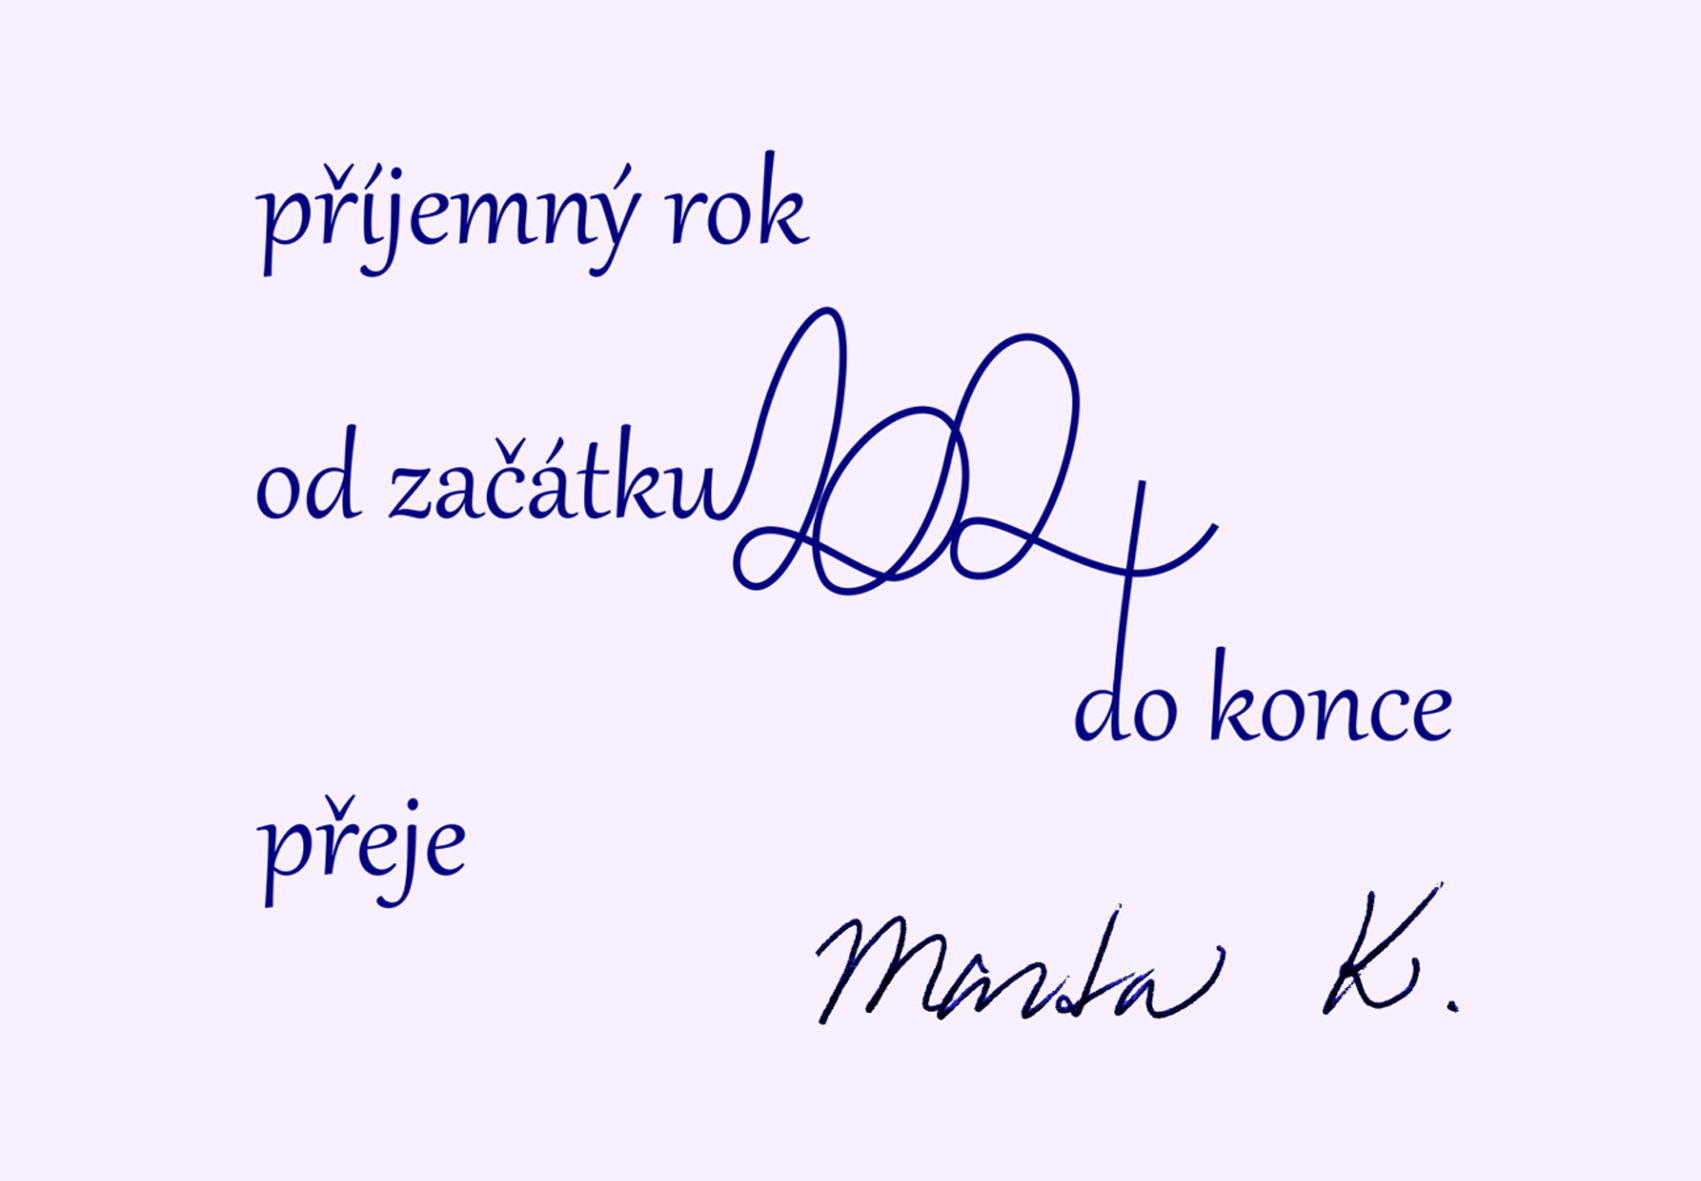 příjemný rok
od začátku 2024
do konce
přeje
Marta K.